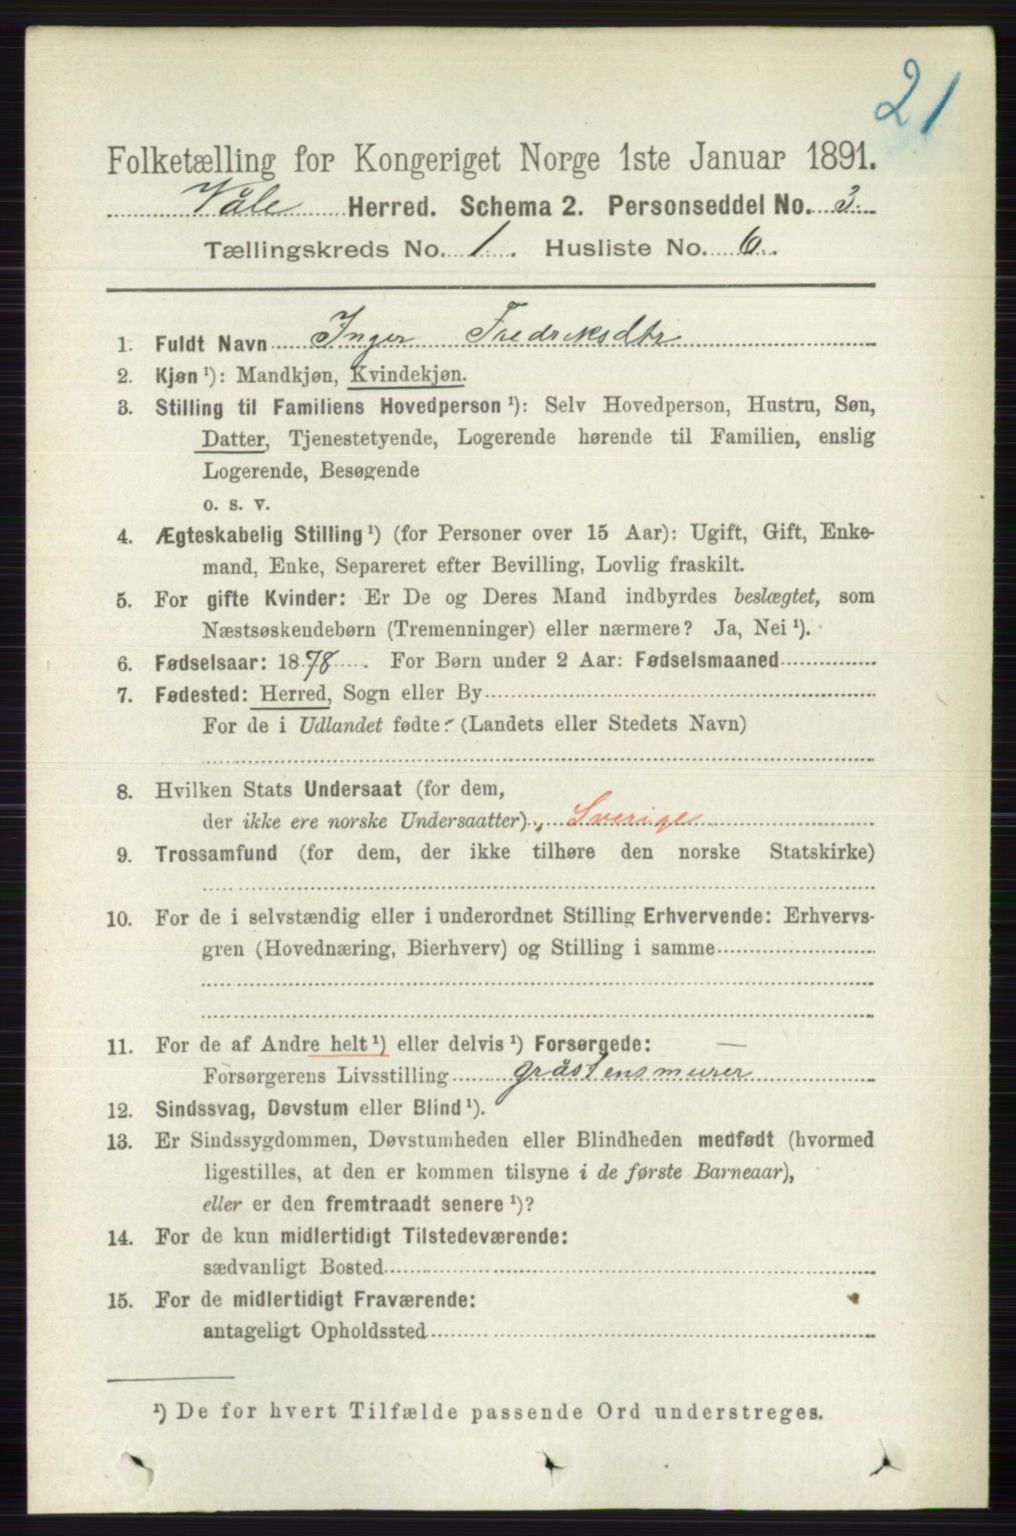 21
Folketælling for Kongeriget Norge 1ste Januar 1891.
Våle Herred. Schema 2. Personseddel No. 3.
Tællingskreds No. 1. Husliste No. 6.
1. Fuldt Navn Inger Fredriksdtr
2. Kjøn ¹): Mandkjøn, Kvindekjøn.
3. Stilling til Familiens Hovedperson ¹): Selv Hovedperson, Hustru, Søn,
Datter, Tjenestetyende, Logerende hørende til Familien, enslig
Logerende, Besøgende
o. s. v.
4. Ægteskabelig Stilling ¹) (for Personer over 15 Aar): Ugift, Gift, Enke-
mand, Enke, Separeret efter Bevilling, Lovlig fraskilt.
5. For gifte Kvinder: Er De og Deres Mand indbyrdes beslægtet, som
Næstsøskendebørn (Tremenninger) eller nærmere? Ja, Nei ¹).
6. Fødselsaar: 1878. For Børn under 2 Aar: Fødselsmaaned
7. Fødested: Herred, Sogn eller By
For de i Udlandet fødte: (Landets eller Stedets Navn)
8. Hvilken Stats Undersaat (for dem,
der ikke ere norske Undersaatter) Sverige
9. Trossamfund (for dem, der ikke tilhøre den norske Statskirke)
10. For de i selvstændig eller i underordnet Stilling Erhvervende: Erhvervs-
gren (Hovednæring, Bierhverv) og Stilling i samme
11. For de af Andre helt ¹) eller delvis ¹) Forsørgede: —
Forsørgerens Livsstilling gråstensmurer
12. Sindssvag, Døvstum eller Blind ¹).
13. Er Sindssygdommen, Døvstumheden eller Blindheden medfødt (hvormed
ligestilles, at den er kommen tilsyne i de første Barneaar),
eller er den fremtraadt senere ¹)?
14. For de kun midlertidigt Tilstedeværende:
sædvanligt Bosted
15. For de midlertidigt Fraværende:
antageligt Opholdssted
¹) De for hvert Tilfælde passende Ord understreges.